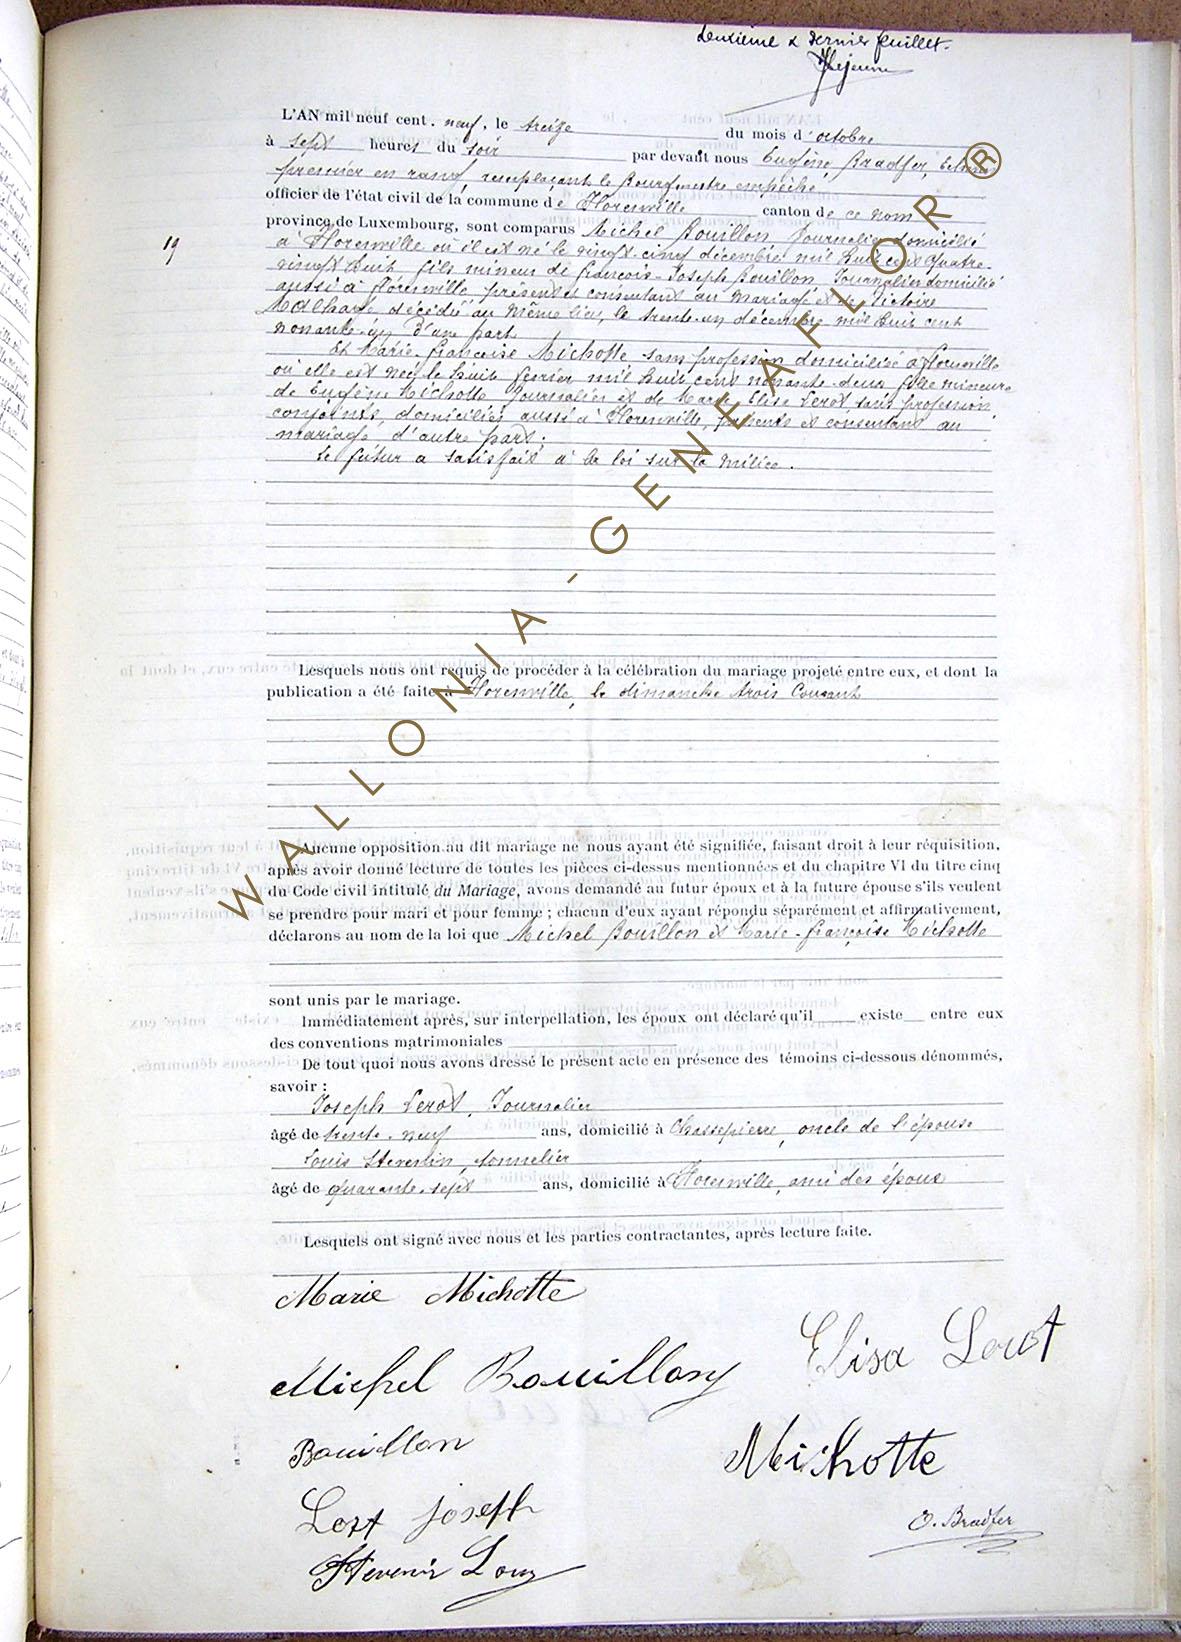 deuxième & dernier feuillet.
Lejeune
L'AN mil neuf cent. neuf, le treize du mois d'octobre
à sept heures du soir par devant nous Eugène, Bradfer, Echevin
premier en rang, remplaçant le Bourgmestre empêché
officier de l'état civil de la commune de Florenville canton de ce nom
province de Luxembourg, sont comparus Michel Bouillon Journalier domicilié
19
à Florenville où il est né le vingt-cinq décembre mil huit cent quatre-
vingt huit, fils mineur de François-Joseph Bouillon Journalier domicilié
aussi à Florenville présent et consentant au mariage et de Victoire
décédée au même lieu, le trente-un décembre mil huit cent
nonante-un d'une part
Et Marie-Françoise Michotte sans profession domiciliée à Florenville
où elle est née le huit février mil huit cent nonante-deux fille mineure
de Eugène Michotte Journalier et de Marie-Elise Lerot, sans profession,
conjoints, domiciliés aussi à Florenville, présents et consentant au
mariage, d'autre part.
Le futur a satisfait à la loi sur la milice.
Lesquels nous ont requis de procéder à la célébration du mariage projeté entre eux, et dont la
publication a été faite à Florenville, le dimanche trois courant
Aucune opposition au dit mariage ne nous ayant été signifiée, faisant droit à leur réquisition,
après avoir donné lecture de toutes les pièces ci-dessus mentionnées et du chapitre VI du titre cinq
du Code civil intitulé du Mariage, avons demandé au futur époux et à la future épouse s'ils veulent
se prendre pour mari et pour femme ; chacun d'eux ayant répondu séparément et affirmativement,
déclarons au nom de la loi que Michel Bouillon et Marie-Françoise Michotte
sont unis par le mariage.
Immédiatement après, sur interpellation, les époux ont déclaré qu'il existe entre eux
des conventions matrimoniales
De tout quoi nous avons dressé le présent acte en présence des témoins ci-dessous dénommés,
savoir :
Joseph Lerot, Journalier
âgé de trente-neuf ans, domicilié à Chassepierre, oncle de l'épouse
Louis Stevenin, tonnelier
âgé de quarante-sept ans, domicilié à Florenville, ami des époux
Lesquels ont signé avec nous et les parties contractantes, après lecture faite.
Marie Michotte
Elisa Lerot
Michel Bouillon
Bouillon
Michotte
Lerot joseph
O. Bradfer
Stevenin Louis
WALLONIA-GENEAFLOR®